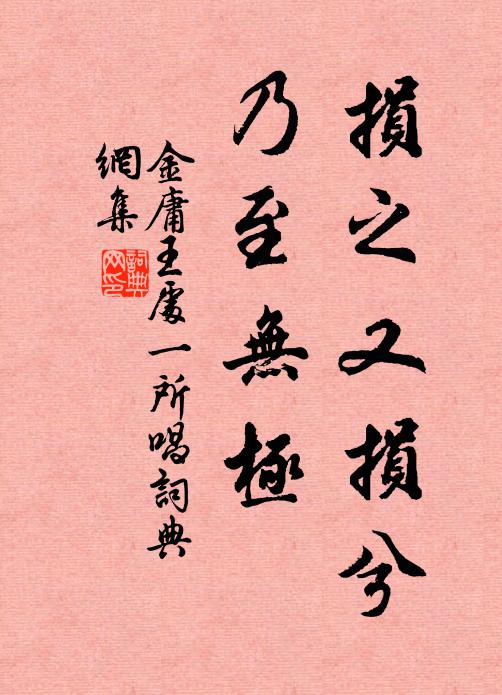 損之又損兮
乃至無極
金庸王處一所唱詞典
網集
詞典
网印